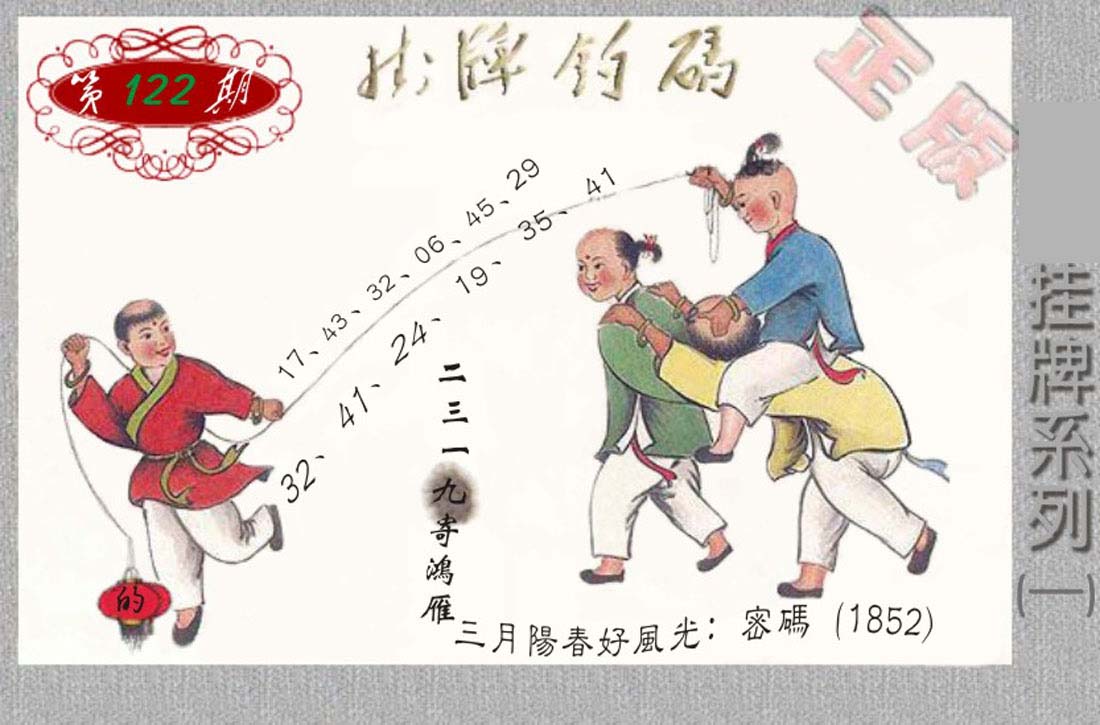 第122期
掛牌釣碼
正版
17、43、32、06、45、29
32、41、24、19、35、41
二三一九寄鴻雁
的
三月陽春好風光：密碼（1852）
挂牌系列(一)